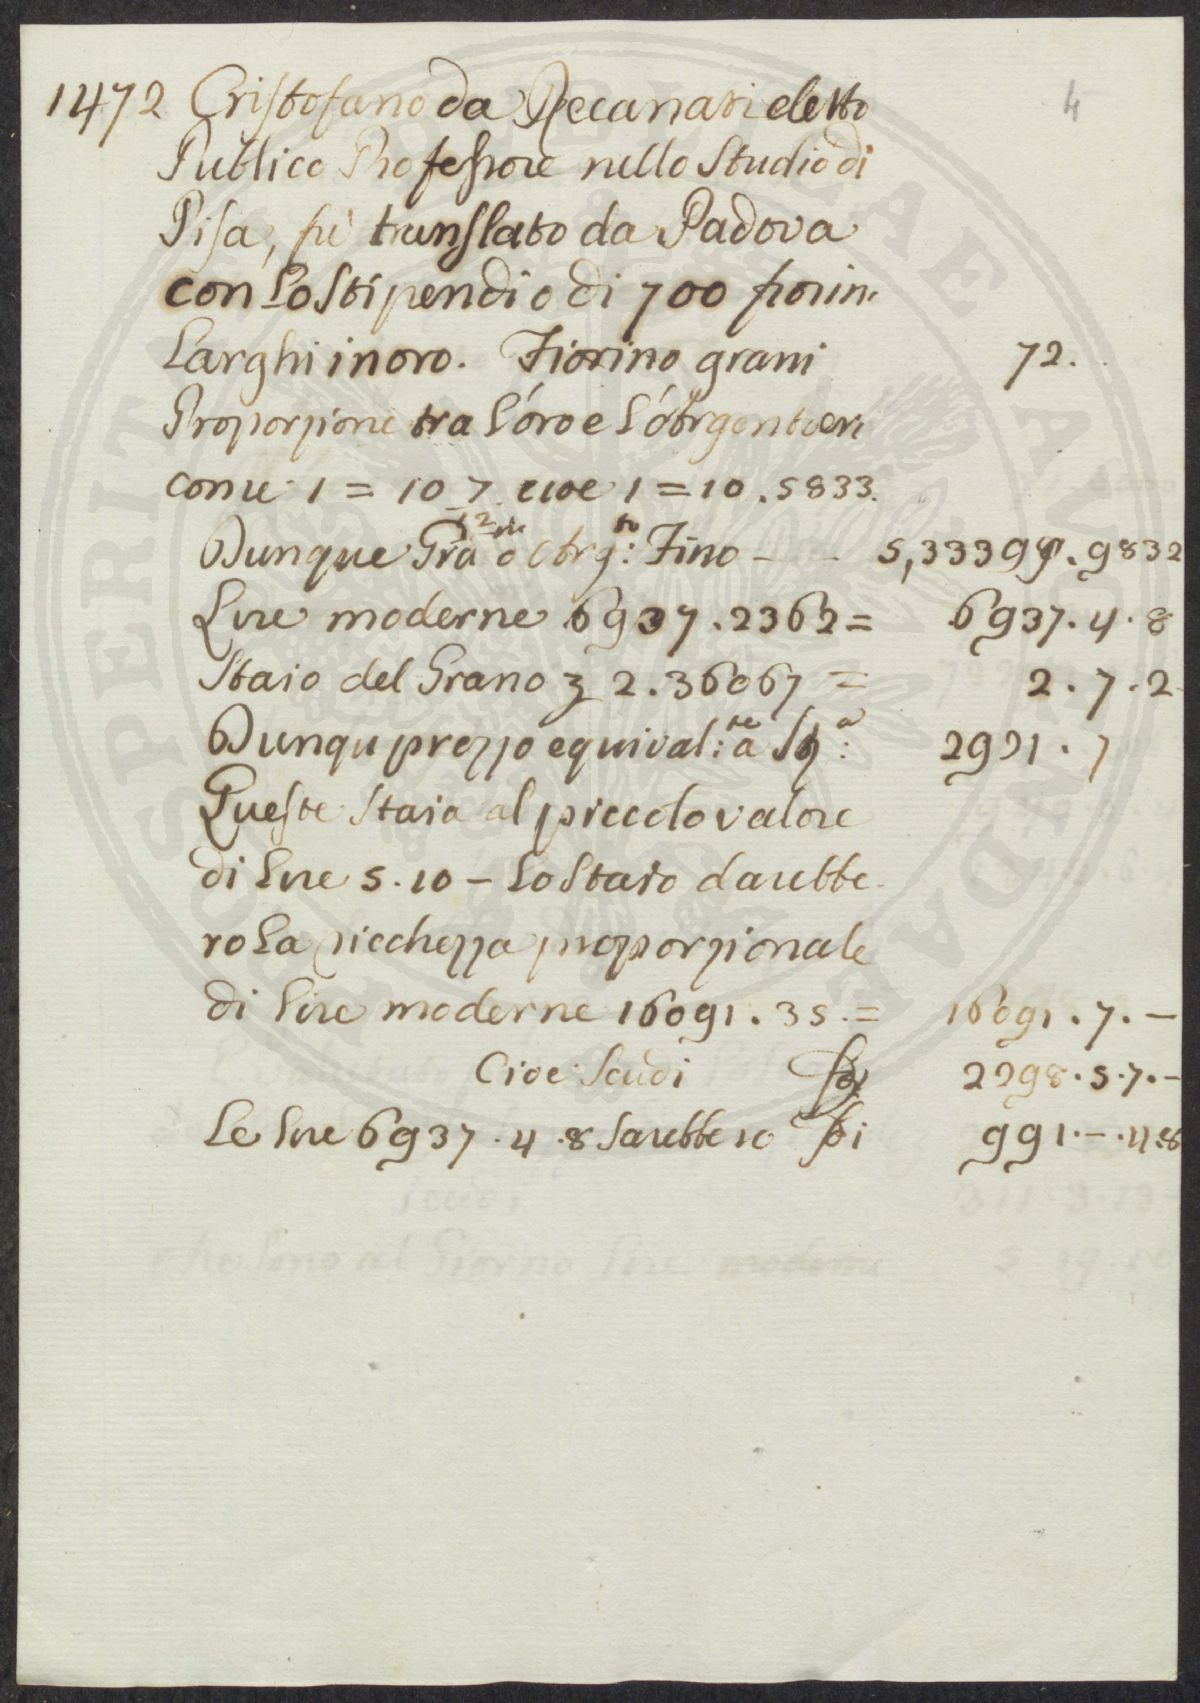 4
1472 Cristofano da Recanati eletto
Publico Professore nello Studio di
Pisa, fù translato da Padova
con lo stipendio di 700 fiorin.
Larghi in oro. Fiorino grani 72.
Proporzione tra l'oro e l'Argento era
come 1 = 10 7/12 cioe 1 = 10.5833.
Dunque Gra.ni d'Arg:to Fino - - 533399.9832
Lire moderne 6937.2362 = 6937.4.8
Staio del Grano 2.36067 = 2.7.2
Dunqu prezzo equival:te a St:a 2921.7
Queste Staia al piccolo valore
di Lire 5.10 - lo Staio darebbe
ro la ricchezza proporzionale
di Lire moderne 16091.35. = 16091.7.-
Cioe Scudi 2298.5.7.-
Le Lire 6937.4.8 sarebbero di 991.-.4.8